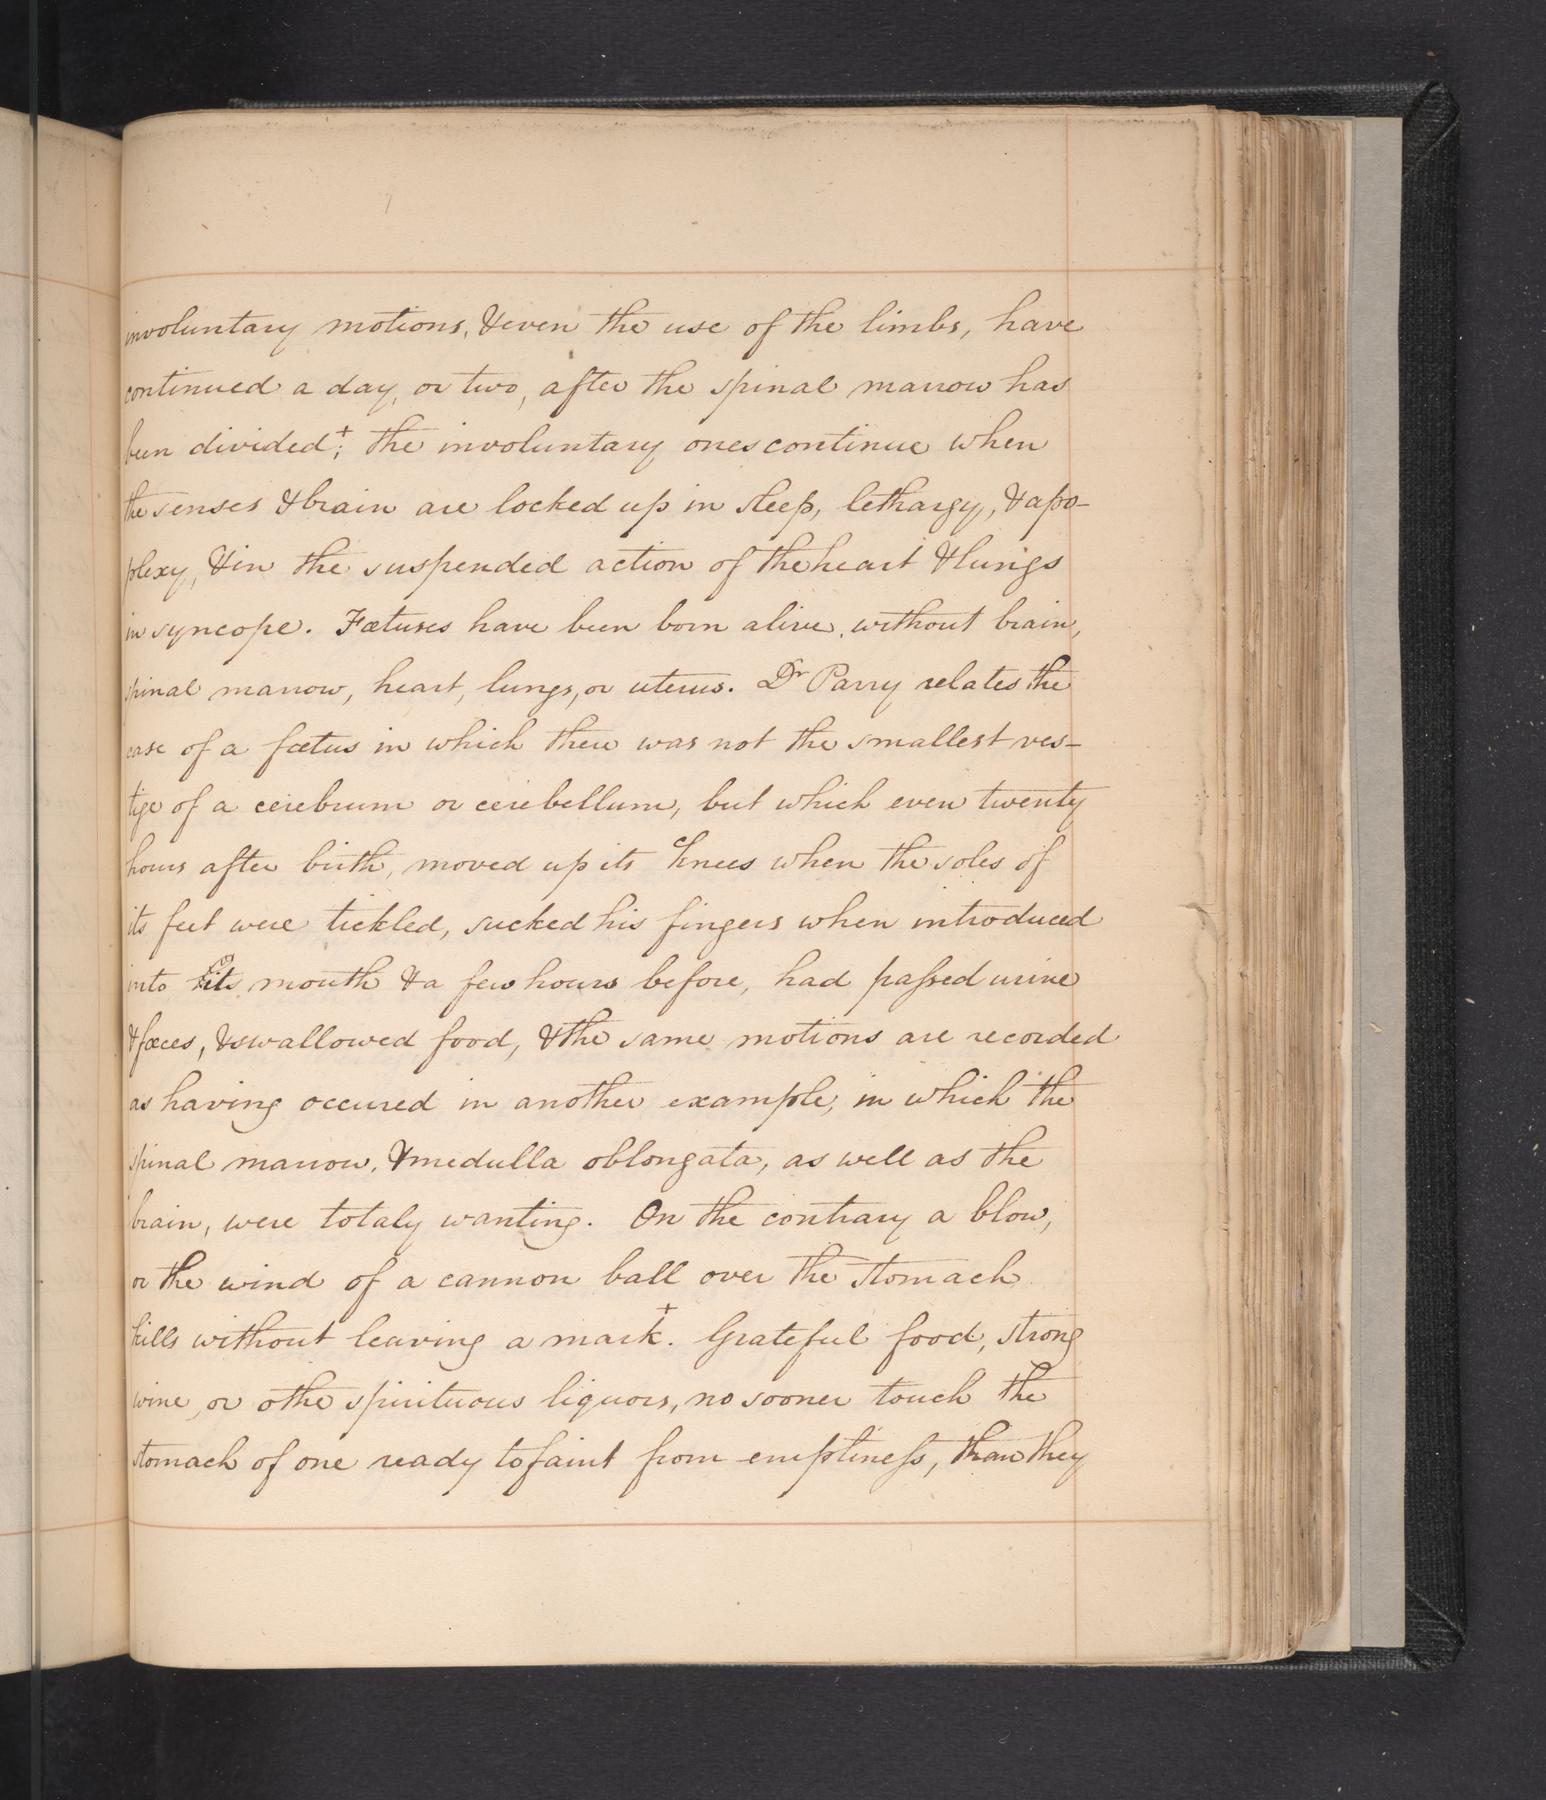 involuntary motions, & even the use of the limbs, have
continued a day, or two, after the spinal marrow has
been divided+; the involuntary ones continue when
the senses & brain are locked up in sleep, lethargy, & apo-
plexy, & in the suspended action of the heart & lungs
in syncope. Fœtuses have been born alive, without brain,
spinal marrow, heart, lungs, or uterus. Dr Parry relates the
case of a fœtus in which there was not the smallest ves-
tige of a cerebrum or cerebellum, but which even twenty
hours after birth, moved up its knees when the soles of
its feet were tickled, sucked his fingers when introduced
into its mouth & a few hours before, had passed urine
& fæces, & swallowed food, & the same motions are recorded
as having occured in another example, in which the
spinal marrow, & medulla oblongata, as well as the
brain, were totaly wanting. On the contrary a blow,
or the wind of a cannon ball over the stomach
kills without leaving a mark+. Grateful food, strong
wine, or othe spirituous liquors, no sooner touch the
stomach of one ready to faint from emptiness, than they